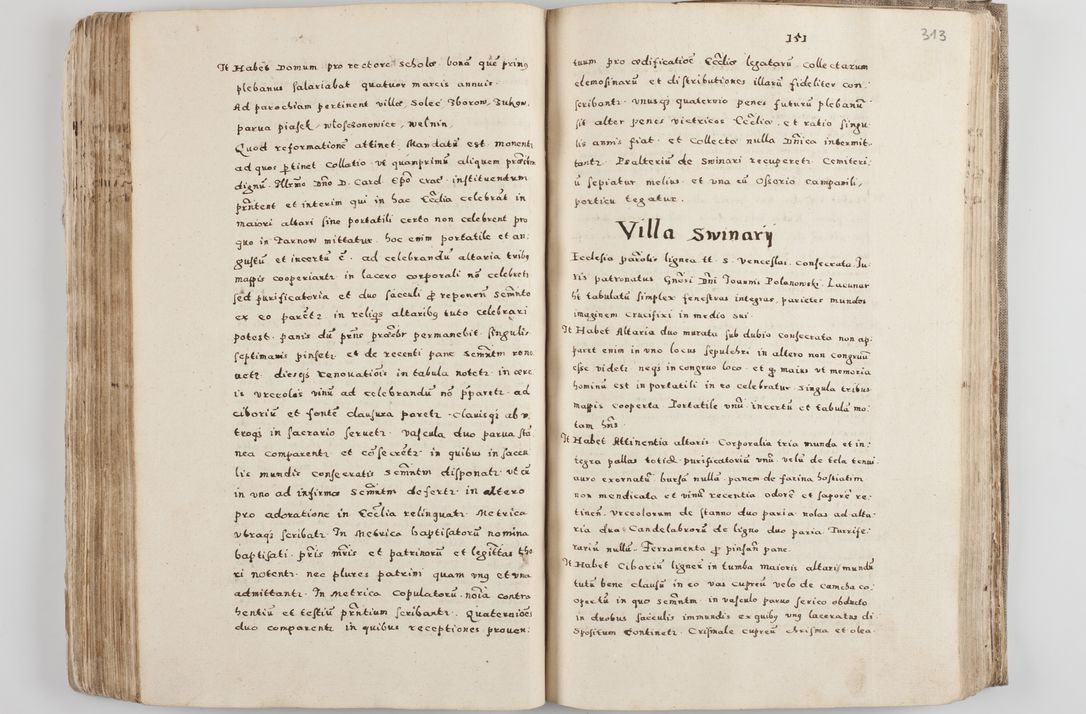 It Habet Domum pro rectore scholæ bonā quē prius
plebanus salariabat quatuor marcis annuis.
Ad parochiam pertinent villæ, Solec Zborow, Zukow,
parua piasek, Włoschonowice, Welnin,
Quod reformationē attinet. Mandatū est monentr
ad quos ꝑtinet Collatio. vt quamprimū aliquem
dignū Illrmo Dño D. Card Epō crac. instituendum
prñtent et interim qui in hac Ecclia celebrāt in
maiori altari sine portatili certo non celebrent pro
quo in Tarnow mittatur. hoc enim portatile et an:
gustū et incertū ē. ad celebrandū altaria tribꝯ
mappis cooperiantr in lacero corporali nō celebretr
sed purificatoria et duo sacculi ꝓ reponen Semñto
ex eo parētr. in reliqs altaribꝯ tuto celebrari
potest. panis dū prñs permanebit. singulis
septimanis pinsetr et de recenti pane Semñtm reno
uetr diesqz renouatiōis in tabula notetr in œre
is vrceolos vinū ad celebrandū nō pparetr. ad
ciborium et fontē clausura paretr. Clauisqz ab v
troqz in sacrario seruetr. Vascula duo parua sta
nea comparentr et cōsecrētr in quibus in saccu
lis mundis consecratis Semñtm disponatr vt cū
in vno ad infirmos Semñtm defertr in altero
pro adoratione in Ecclia relinquatr Metrica
vtraqz scribatr In Metrica baptisatorū nomina
baptisati. prīs mrīs et patrinorū et legittas tho
ri notentr. nec plures patrini quam vnꝯ et vna
admittantr. In Metrica Copulatorū noīa contra
hentiū et testiū prñtium scribantr. Quaterniōes
duo comparentr in quibus receptiones prouen:
151
313
tuum pro ædificatiōe Eccliæ legatarū, collectarum
elemosinarū et distributiones illarū fideliter con:
scribantr. vnusqz quaternio penes futurū plebanū
sit alter penes victricos Eccliæ, et ratio singu:
lis annis fiat. et Collecta nulla Dñica intermit:
tantr. Psalteriū de Swinari recuperetr. Cemiteri:
ū sepiatur melius. et vna cū Ossorio campanili,
porticu tegatur.
Villa Swinarÿ
Ecclesia parolis lignea tt. S. Venceslai. consecrata. Iu:
ris patronatus Gnōsi Dñi Ioannis Polanowski. Lacunar
ht tabulatū simplex fenestras integras, parietes mundos
imaginem Crucifixi in medio sui.
It Habet Altaria duo murata sub dubio consecrato non ap:
paret enim in vno locus sepulchri in altero non congruū
esse videtr neqz in congruo loco. et ꝙ maius vt memoria
hominū est in portatili in eo celebratur. singula tribus
mappis cooperta Portatile vnū incertū et tabulā mo:
tam hñs.
It Habet Attinentia altaris. Corporalia tria munda et in:
tegra pallas totid purificatoriū vnū. velū de tela tenui
auro exornatū. bursā nullā. panem de farina hostiatim
non mendicata et vinū recentia odorē et saporē re:
tinen. Vrceolorum de stanno duo paria nolas ad alta:
ria dua: Candelabrorū de ligno duo paria Turrife:
rariū nullū. Ferramenta ꝓ pinsan pane.
It Habet Ciboriū ligneū in tumba maioris altaris mundū
tutū bene clausū in eo vas cupreū velo de camcha co:
opertū in quo semñtm. in vasculo paruo serico obducto
in duobus sacculis immundis ex quibꝯ vnꝯ laceratus di:
spositum Continetr. Crismale cupreū chrisma et olea